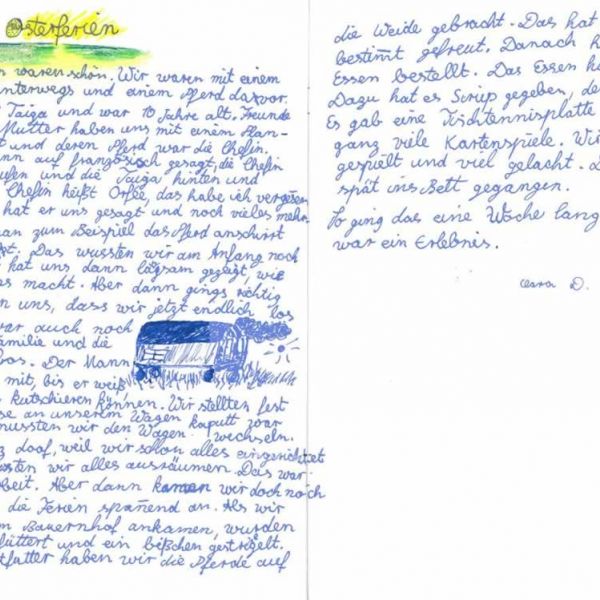 Osterferien
n waren schön. Wir waren mit einem
nterwegs und einem Pferd davor.
Taiga und war 10 Jahre alt. Freunde
Mutter haben uns mit einem Plan-
t und deren Pferd war die Chefin.
nn auf französisch gesagt, die Chefin
ufen und die Taiga hinten und
Chefin heißt Orfée, das habe ich vergessen
hat er uns gesagt und noch vieles mehr
man zum Beispiel das Pferd anschirrt
rt. Das wussten wir am Anfang noch
hat uns dann lagsam gezeigt, wie
es macht. Aber dann gings richtig
en uns, dass wir jetzt endlich los
war auch noch
amilie und die
bos. Der Mann
mit, bis er weiß,
kutschieren können. Wir stellten fest
se an unserem Wagen kaputt war
mussten wir den Wagen wechseln.
z doof, weil wir schon alles eingerichtet
ssten wir alles ausräumen. Das war
beit. Aber dann kamen wir doch noch
die Ferien spanend an. Als wir
m Bauernhof ankamen, wurden
füttert und ein bißchen gestriegelt.
tfutter haben wir die Pferde auf
die Weide gebracht. Das hat
bestimt gefreut. Danach h
Essen bestellt. Das Essen h
Dazu hat es Sirup gegeben, de
Es gab eine Tischtennisplatte
gang viele Kartenspiele. Wi
gespielt und viel gelacht.
spät ins Bett gegangen.
So ging das eine Woche lang
war ein Erlebnis.
Clara D.